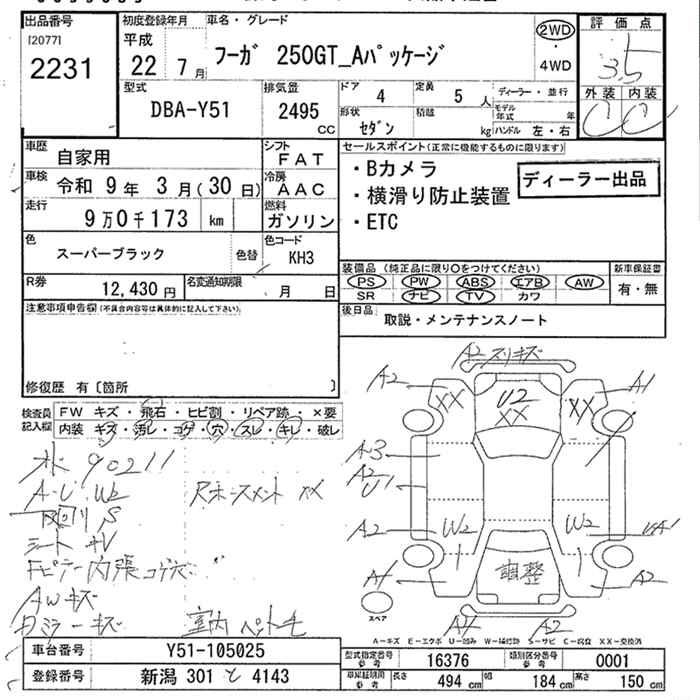 出品番号
[2077]
2231
初度登録年月
平成
22 7月
車名・グレード
フーガ 250GT_Aパッケージ
2WD
・
4WD
評価点
3.5
外装 内装
C C
型式
DBA-Y51
排気量
2495
CC
ドア 4
定員 5 人
形状
セダン
積載
kg
ディーラー・並行
モデル年式 年
ハンドル 左・右
車歴
自家用
シフト
FAT
車検
令和 9年 3月(30日)
冷房
AAC
走行
9万0千173 km
燃料
ガソリン
色
スーパーブラック
色替
色コード
KH3
R券
12,430 円
名変通知期限
月 日
セールスポイント(正常に機能するものに限ります)
・Bカメラ
・横滑り防止装置
・ETC
ディーラー出品
装備品 (純正品に限り○をつけてください)
PS PW ABS エアB AW
SR ナビ TV カワ
新車保証書
有・無
後日品
取説・メンテナンスノート
注意事項申告欄(不具合内容等は具体的に記入して下さい)
修復歴 有〔箇所 〕
検査員
記入欄
FW キズ・飛石・ヒビ割・リペア跡・×要
内装 キズ・汚レ・コゲ・穴・スレ・キレ・破レ
90211
A-U W2
S
シート
内張コゲ穴
AWキズ
ミラーキズ
室内
XX
A2 スリキズ
A2
XX
U2
XX
XX
A1
A-3
A2
U1
A2
W2
W2
UA1
A1
調整
A2
A2
スペア
A-キズ E-エクボ U-凹み W-補修跡 S-サビ C-腐食 XX-交換済
車台番号
Y51-105025
登録番号
新潟 301 と 4143
型式指定番号
参考
16376
類別区分番号
参考
0001
車庫証明用
参考
長さ 494 cm
幅 184 cm
高さ 150 cm